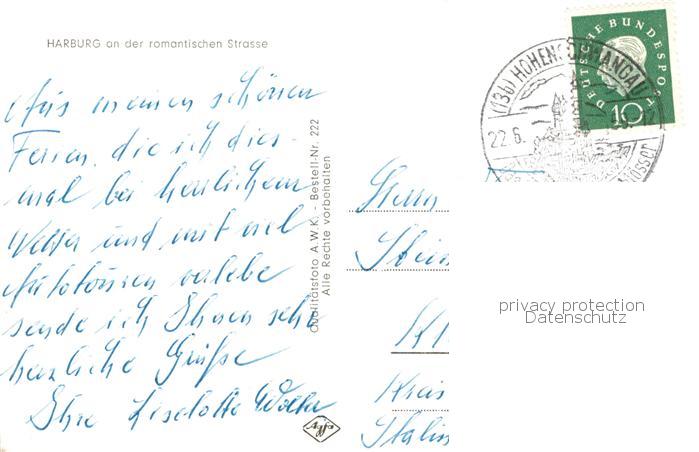 HARBURG an der romantischen Strasse
Aus meinen schönen
Ferien, die ich dies-
mal bei herrlichem
Wetter und mit viel
Autotouren verlebe
sende ich Ihnen sehr
herzliche Grüße
Ihre Liselotte
Qualitätsfoto A.W.K. - Bestell-Nr. 222
Alle Rechte vorbehalten
Agfa
DEUTSCHE BUNDESPOST
10
(13b) HOHENSCHWANGAU
22.6.
Herrn
Stein
Kl
Kreis
privacy protection
Datenschutz